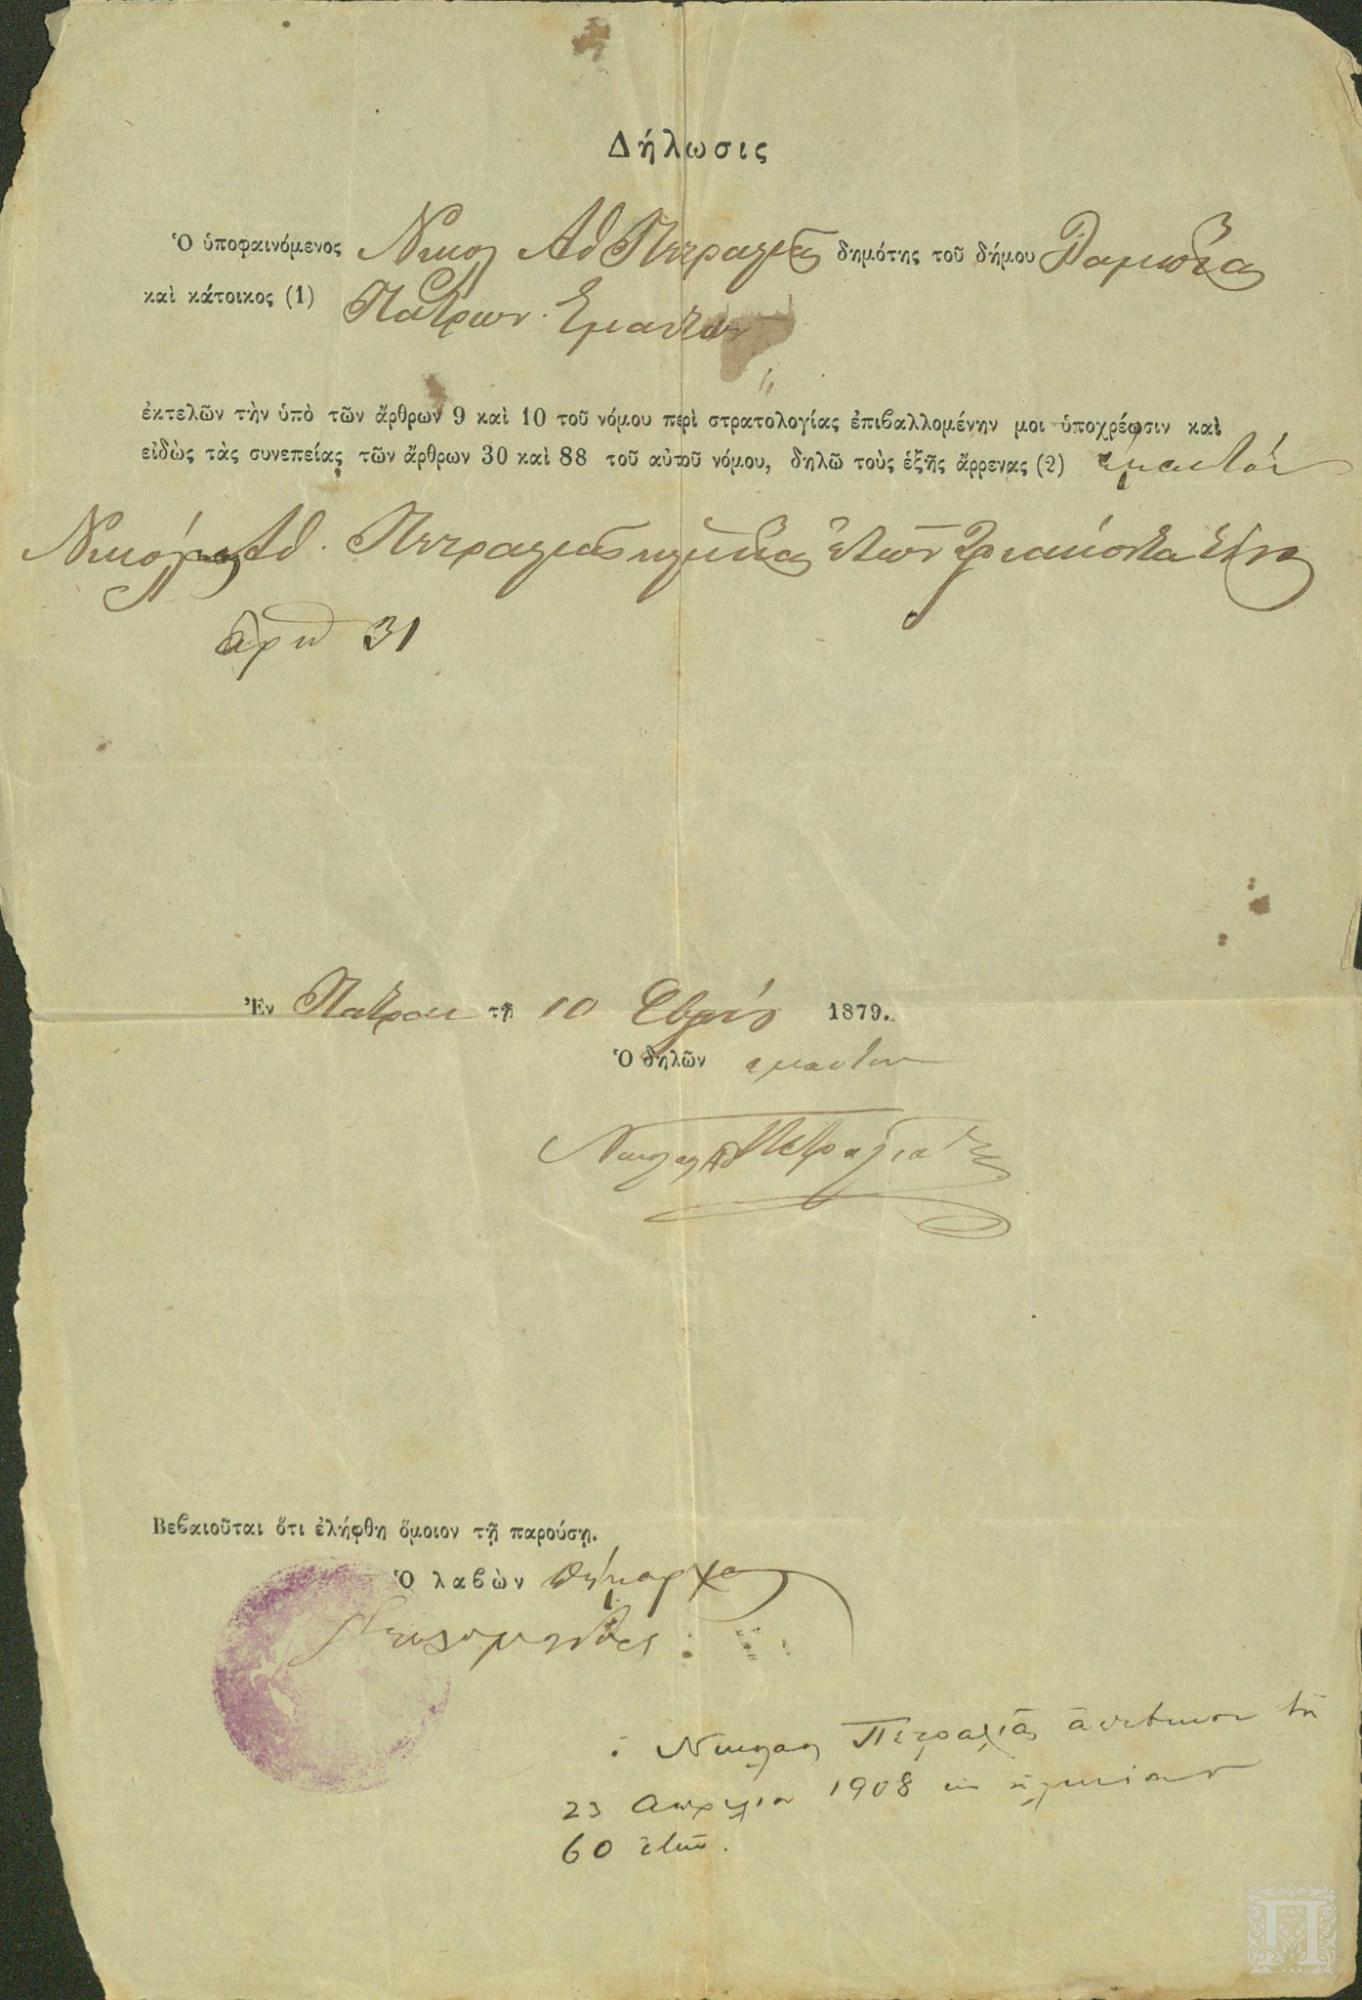 Δήλωσις
Ὁ ὑποφαινόμενος Νικολ Αθ Πετραλιᾶς δημότης τοῦ δήμου
καὶ κάτοικος (1) Πατρων
ἐκτελῶν τὴν ὑπὸ τῶν ἄρθρων 9 καὶ 10 τοῦ νόμου περὶ στρατολογίας ἐπιβαλλομένην μοι ὑποχρέωσιν καὶ
εἰδὼς τὰς συνεπείας τῶν ἄρθρων 30 καὶ 88 τοῦ αὐτοῦ νόμου, δηλῶ τοὺς ἑξῆς ἄρρενας (2) εμαυτόν
Νικόλαος Αθ. Πετραλιας ηλικιας ἐτων τριακοντα ενος
αριθ 31
Ἐν Πατραις τῇ 10 1879.
Ὁ δηλῶν εμαυτον
Νικολαος Αθ Πετραλιας
Βεβαιοῦται ὅτι ἐλήφθη ὅμοιον τῇ παρούσῃ.
Ὁ λαβὼν δήμαρχος
Νικολαος Πετραλιᾶς ἀπεβίωσε τη
23 Απριλιου 1908 εις ηλικίαν
60 ἐτῶν.
Π